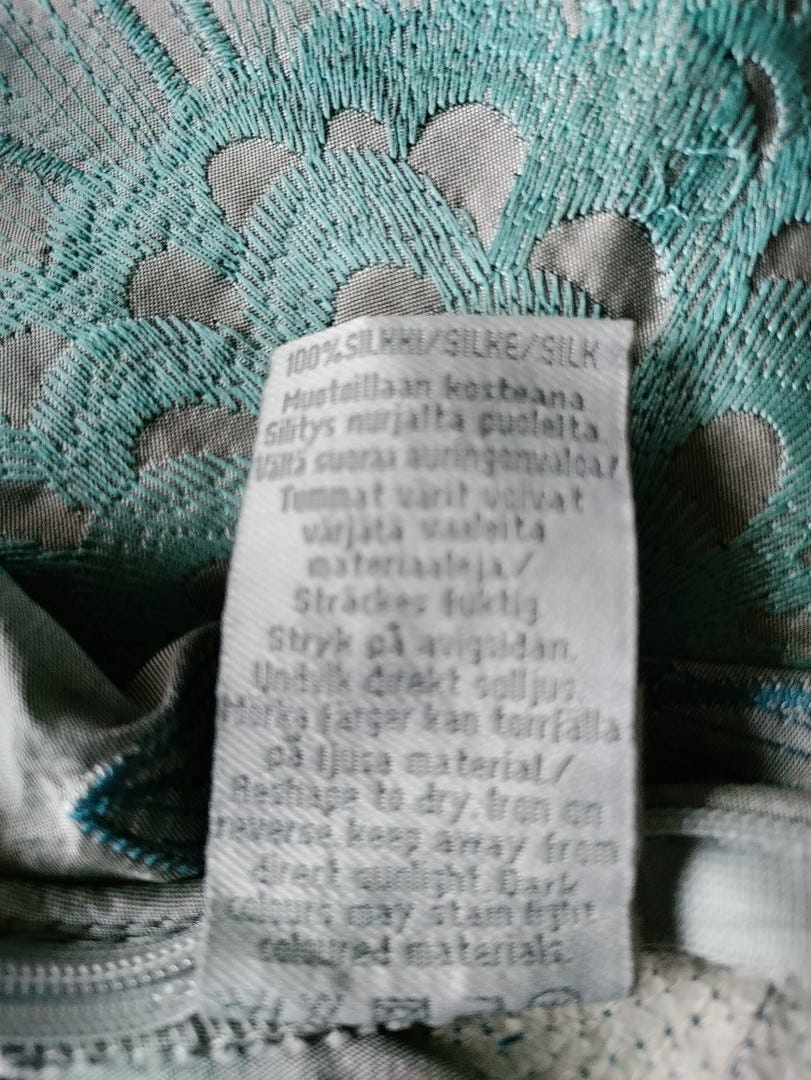 100%SILKKI/SILKE/SILK
Muotoillaan kosteana
Silitys nurjalta puolelta.
Vältä suoraa auringonvaloa/
Tummat värit voivat
värjätä vaaleita
materiaaleja/
Sträckes fuktig
Stryk på avigsidan.
Undvik direkt solljus.
Mörka färger kan
på ljusa material/
Reshape to dry. Iron on
reverse keep away from
direct sunlight. Dark
colours may stain light
coloured materials.